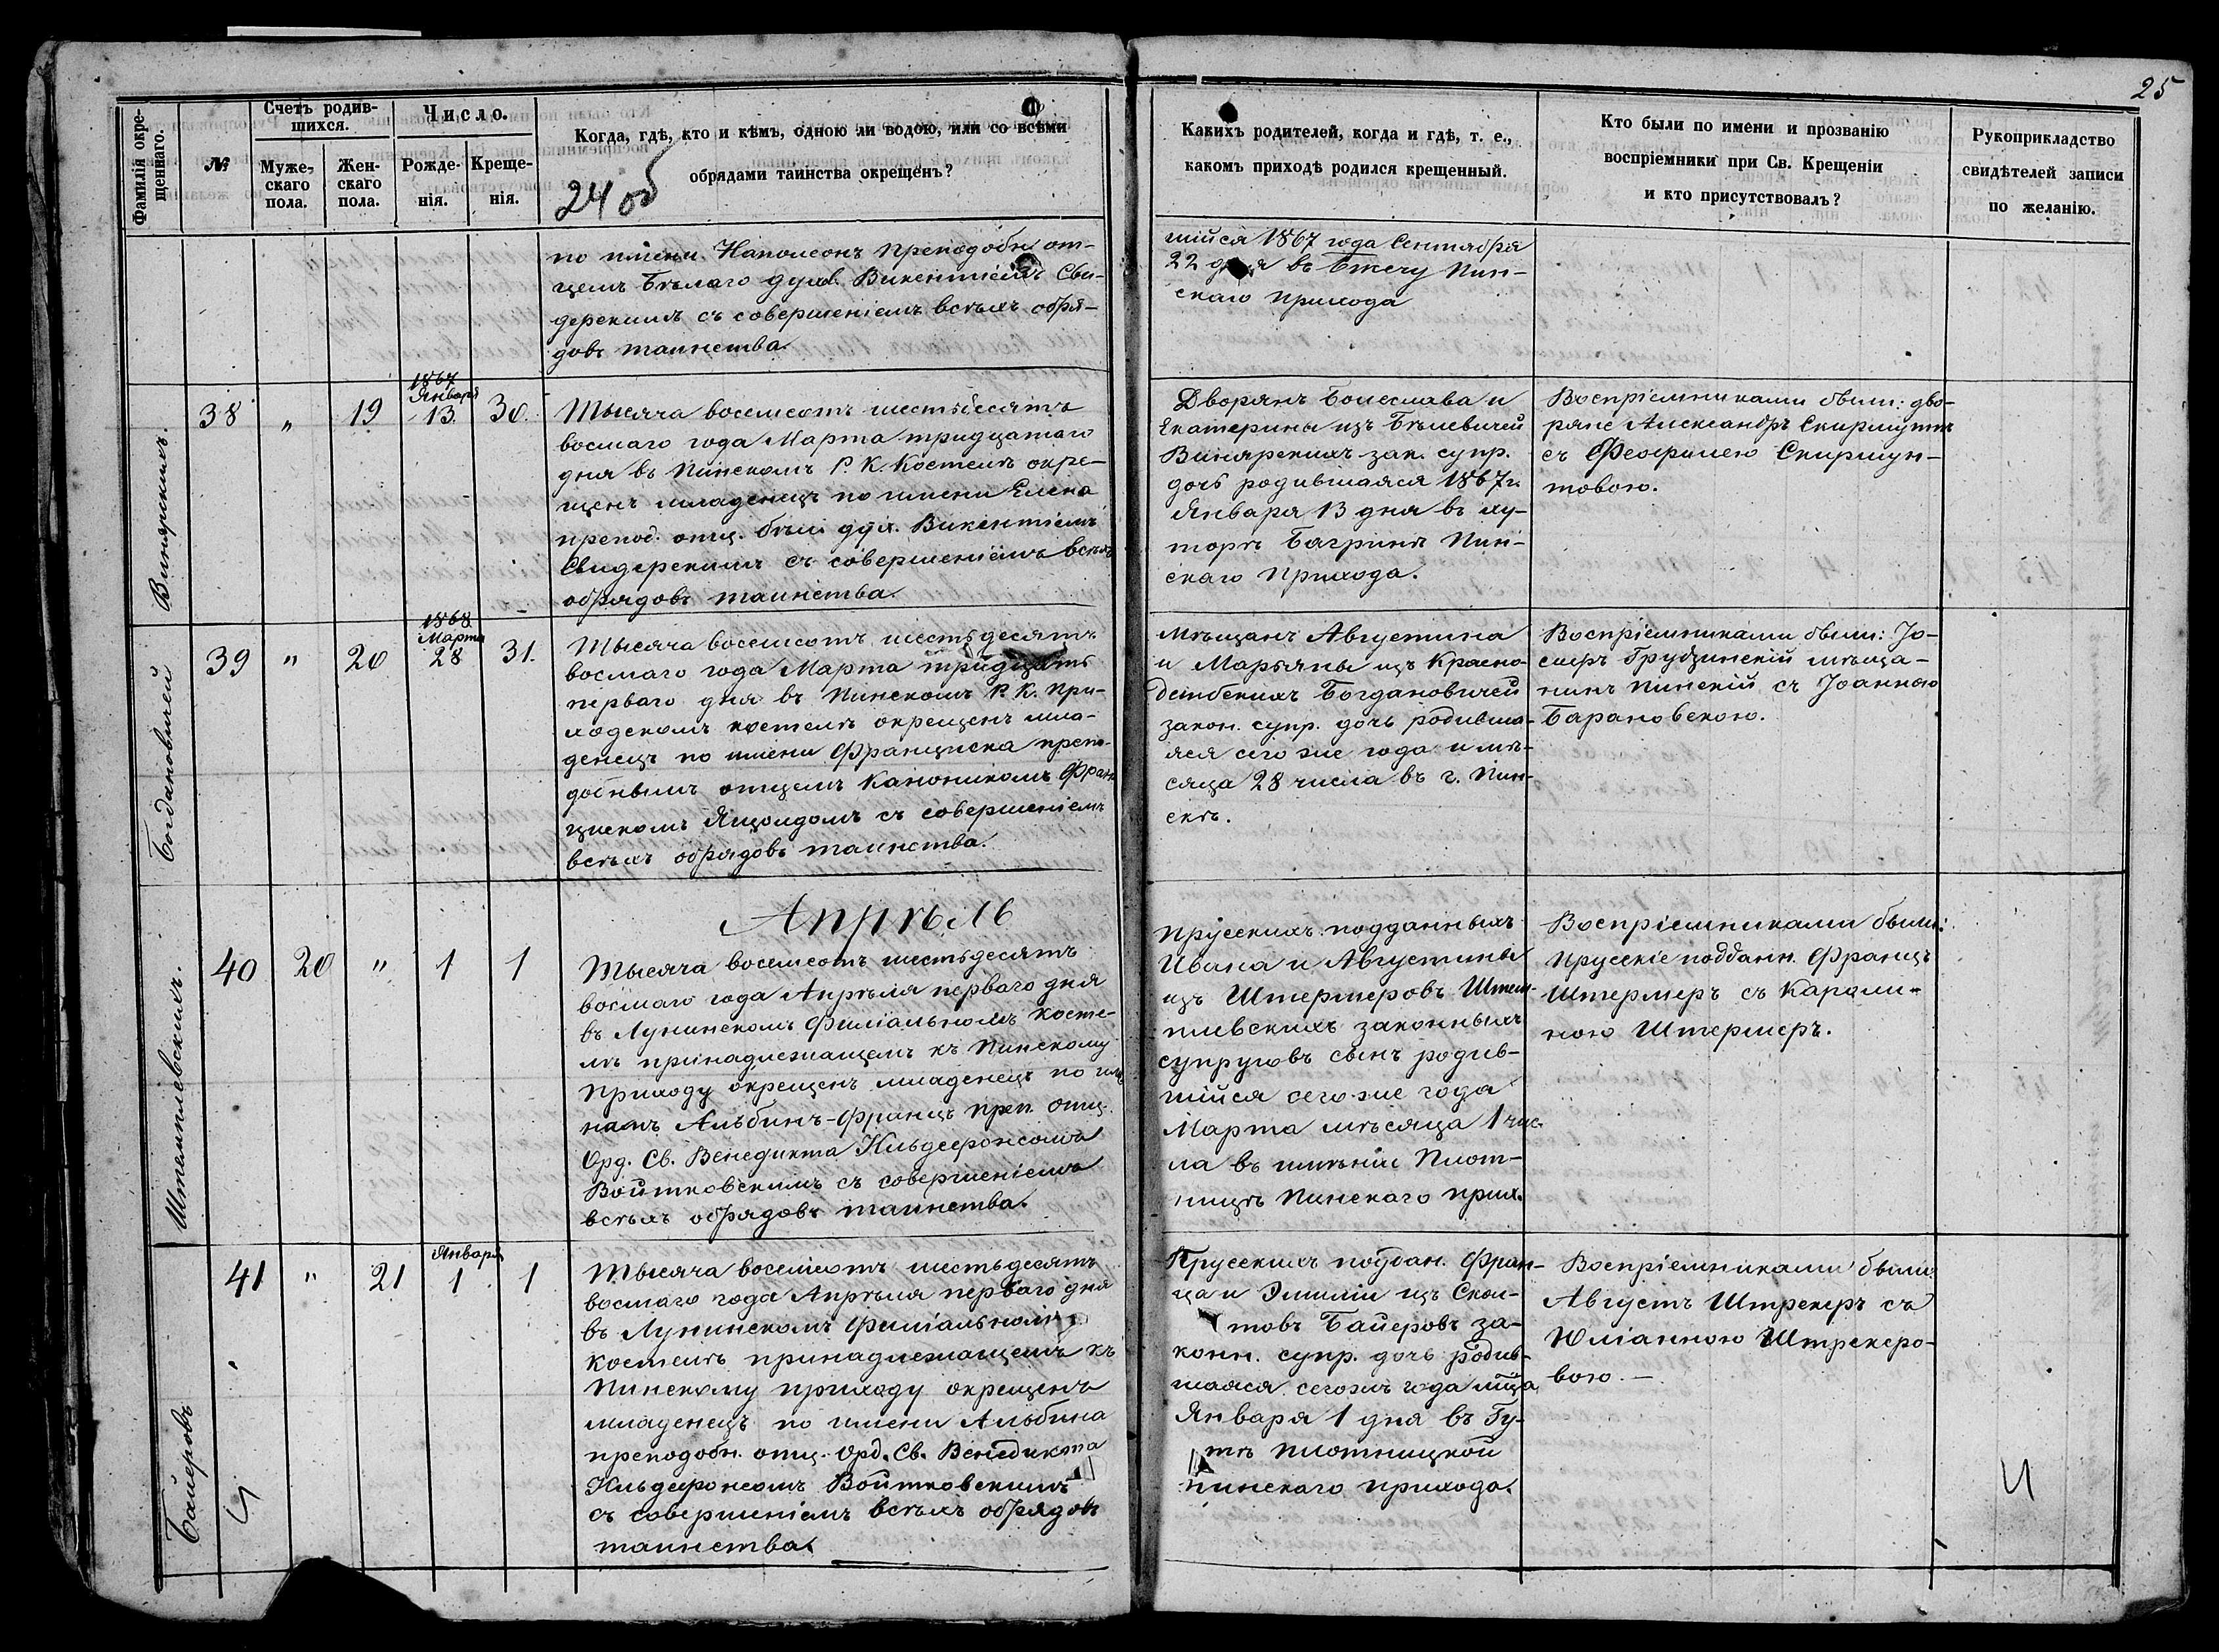 25
Фамилія окре-
щеннаго.
№
Счетъ родив-
шихся.
Муже-
скаго
пола.
Жен-
скаго
пола.
Число.
Рожде-
нія.
Креще-
нія.
Когда, гдѣ, кто и кѣмъ, одною ли водою, или со всѣми
обрядами таинства окрещенъ?
24 об
Какихъ родителей, когда и гдѣ, т. е.,
какомъ приходѣ родился крещенный.
Кто были по имени и прозванію
воспріемники при Св. Крещеніи
и кто присутствовалъ?
Рукоприкладство
свидѣтелей записи
по желанію.
по имени Наполеонъ преподобн. от-
цемъ бѣлаго духов. Викентіемъ Сви-
дерскимъ съ совершеніемъ всѣхъ обря-
довъ таинства.
шійся 1867 года Сентября
22 дня въ Пин-
скаго прихода
Винярскихъ.
38 " 19
1867
Января
13. 30.
Тысяча восемсотъ шестьдесятъ
восмаго года Марта тридцатаго
дня въ Пинскомъ Р. К. Костелѣ окре-
щенъ младенецъ по имени Елена
препод. отц. бѣл. дух. Викентіемъ
Свидерскимъ съ совершеніемъ всѣхъ
обрядовъ таинства.
Дворянъ Болеслава и
Екатерины изъ Бѣлевичей
Винярскихъ зак. супр.
дочь родившаяся 1867 г.
Января 13 дня въ ху-
торѣ Багринѣ Пин-
скаго прихода.
Воспріемниками были: дво-
ряне Александръ Скирмунтъ
съ Феофилею Скирмун-
товою.
Богдановичей
39 " 20
1868
Марта
28 31.
Тысяча восемсотъ шестьдесятъ
восмаго года Марта тридцать
перваго дня въ Пинскомъ Р. К. При-
ходскомъ костелѣ окрещенъ мла-
денецъ по имени Франциска препо-
добнымъ отцемъ Каноникомъ Фран-
цискомъ Яцолдомъ съ совершеніемъ
всѣхъ обрядовъ таинства.
Мѣщанъ Августина
и Марьяны изъ Красно-
дембскихъ Богдановичей
закон. супр. дочь родивша-
яся сего же года и мѣ-
сяца 28 числа въ г. Пин-
скѣ.
Воспріемниками были: Іо-
сифъ Грудзинскій мѣща-
нинъ пинскій съ Іоанною
Барановскою.
Штемплевскихъ.
40 20 " 1 1
Апрѣль
Тысяча восемсотъ шестьдесятъ
восмаго года Апрѣля перваго дня
въ Лунинскомъ Филіальномъ косте-
лѣ принадлежащемъ къ Пинскому
приходу окрещенъ младенецъ по име-
намъ Альбинъ-Францъ преп. отц.
Орд. Св. Венедикта Ильдефонсомъ
Войтковскимъ съ совершеніемъ
всѣхъ обрядовъ таинства.
Прусскихъ подданныхъ
Ивана и Августины
изъ Штермеровъ Штем-
плевскихъ законныхъ
супруговъ сынъ родив-
шійся сего же года
Марта мѣсяца 1 чис-
ла въ имѣніи Плот-
ницѣ Пинскаго прих.
Воспріемниками были:
Прусскіе поддан. Францъ
Штермеръ съ Кароли-
ною Штермеръ.
Байеровъ
41 " 21
Января
1 1
Тысяча восемсотъ шестьдесятъ
восмаго года Апрѣля перваго дня
въ Лунинскомъ Филіальномъ
костелѣ принадлежащемъ къ
Пинскому приходу окрещенъ
младенецъ по имени Альбина
преподобн. отц. Орд. Св. Венедикта
Ильдефонсомъ Войтковскимъ
съ совершеніемъ всѣхъ обрядовъ
таинства.
Прусскихъ поддан. Фран-
ца и Эмиліи изъ
Байеровъ за-
конн. супр. дочь родив-
шаяся сего же года мѣца
Января 1 дня въ Гу-
тѣ Плотницкой
пинскаго прихода.
Воспріемниками были
Августъ Штрекеръ съ
Юліанною Штрекеро-
вою.